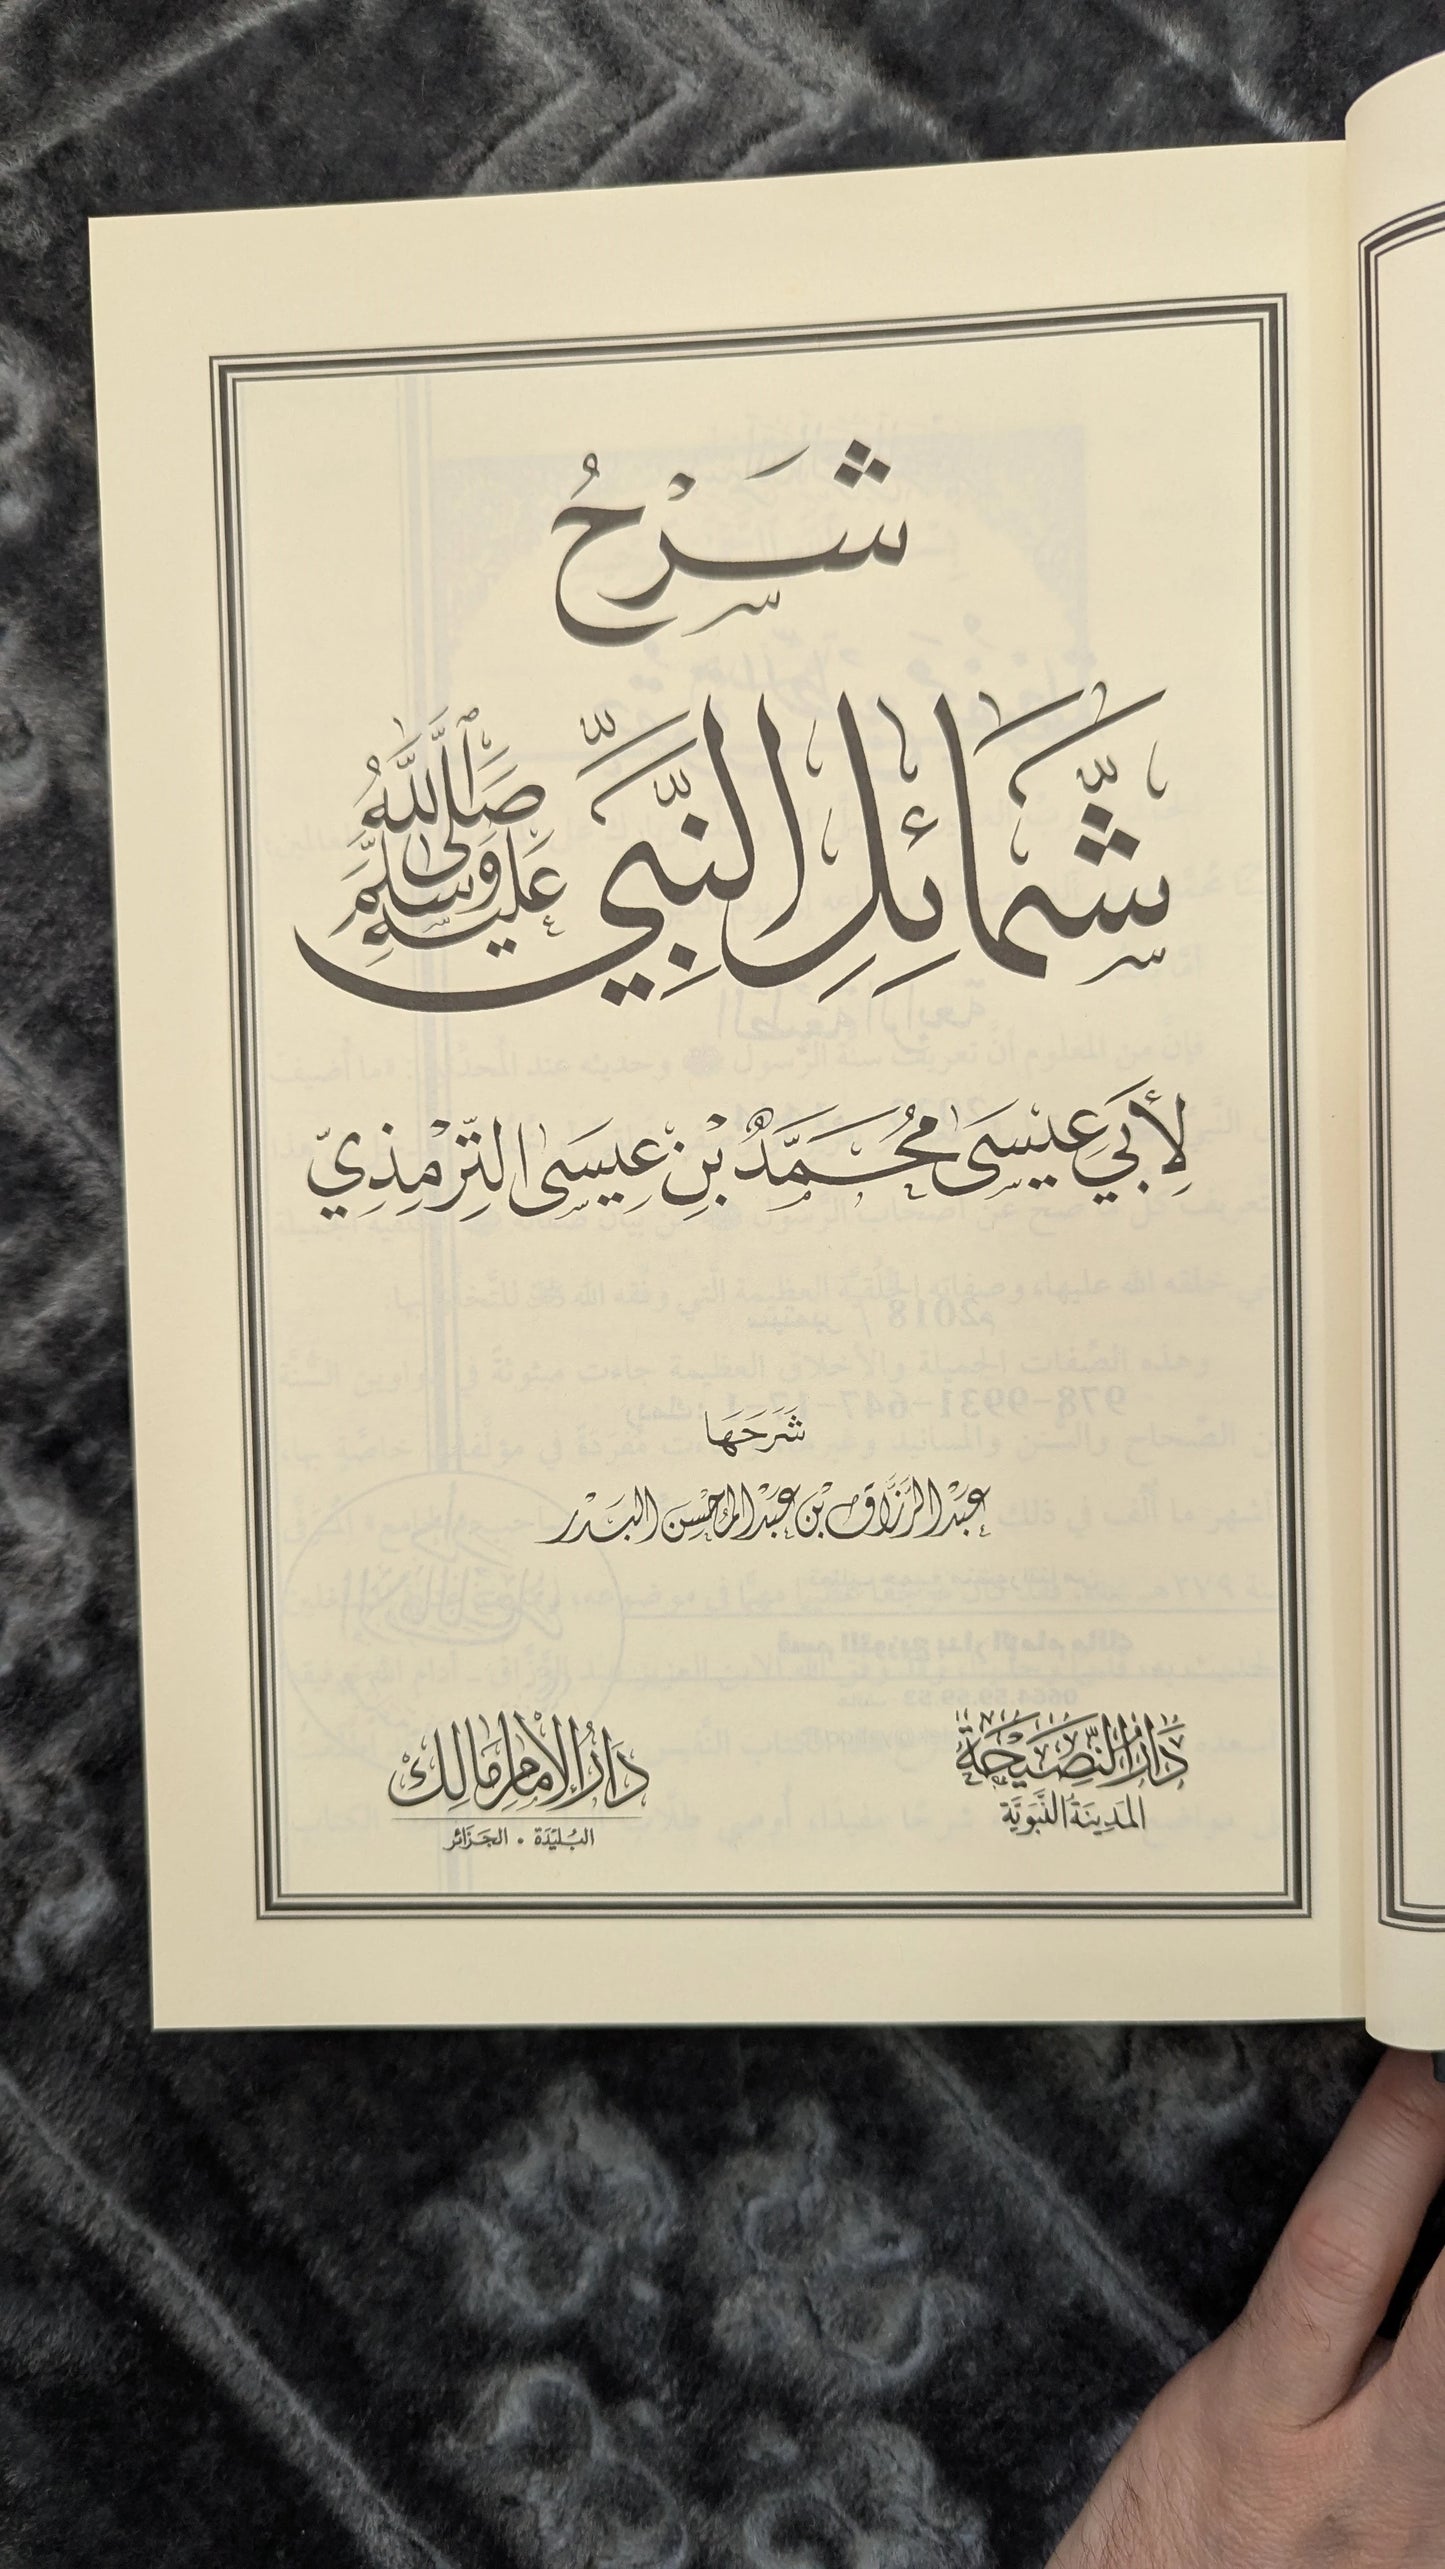 شَرْحُ
شَمَائِلِ النَّبِيِّ صَلَّى اللَّهُ عَلَيْهِ وَسَلَّمَ
لِأَبِي عِيسَى مُحَمَّدُ بْنِ عِيسَى التِّرْمِذِيّ
شَرَحَهَا
عَبْدُ الرَّزَّاقِ بْنُ عَبْدِ الْمُحْسِنِ الْبَدْر
دَارُ النَّصِيحَة
المَدِينَةُ النَّبَوِيَّة
دَارُ الإِمَامِ مَالِك
البُلَيْدَة • الجَزَائر